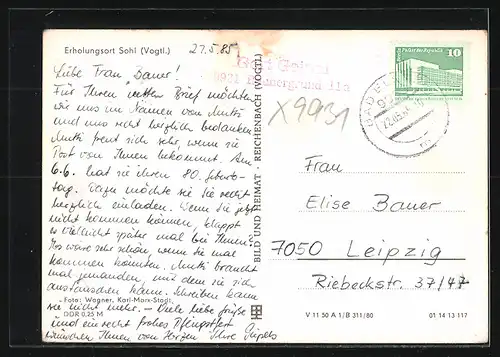 Erholungsort Sohl (Vogtl.)
27.5.85
Liebe Frau Bauer!
Für Ihren netten Brief möchten
wir uns im Namen von Mutti
und uns recht herzlich bedanken.
Mutti freut sich sehr, wenn sie
Post von Ihnen bekommt. Am
6.6. hat sie ihren 80. Geburts-
tag. Dazu möchte sie Sie recht
herzlich einladen. Wenn Sie jetzt
nicht kommen können, klappt
es vielleicht später mal bei Ihnen.
Es wäre sehr schön, wenn Sie mal
kommen könnten. Mutti braucht
mal jemanden, mit dem sie sich
austauschen kann. Schreiben kann
sie nicht mehr. - Viele liebe Grüße
und ein recht frohes Pfingstfest
wünschen Ihnen von Herzen Ihre
Foto: Wagner, Karl-Marx-Stadt,
DDR 0,25 M
BILD UND HEIMAT · REICHENBACH (VOGTL)
X9931
10
BAD EL
Frau
Elise Bauer
7050 Leipzig
Riebeckstr. 37/47
V 11 50 A 1/B 311/80
01 14 13 117